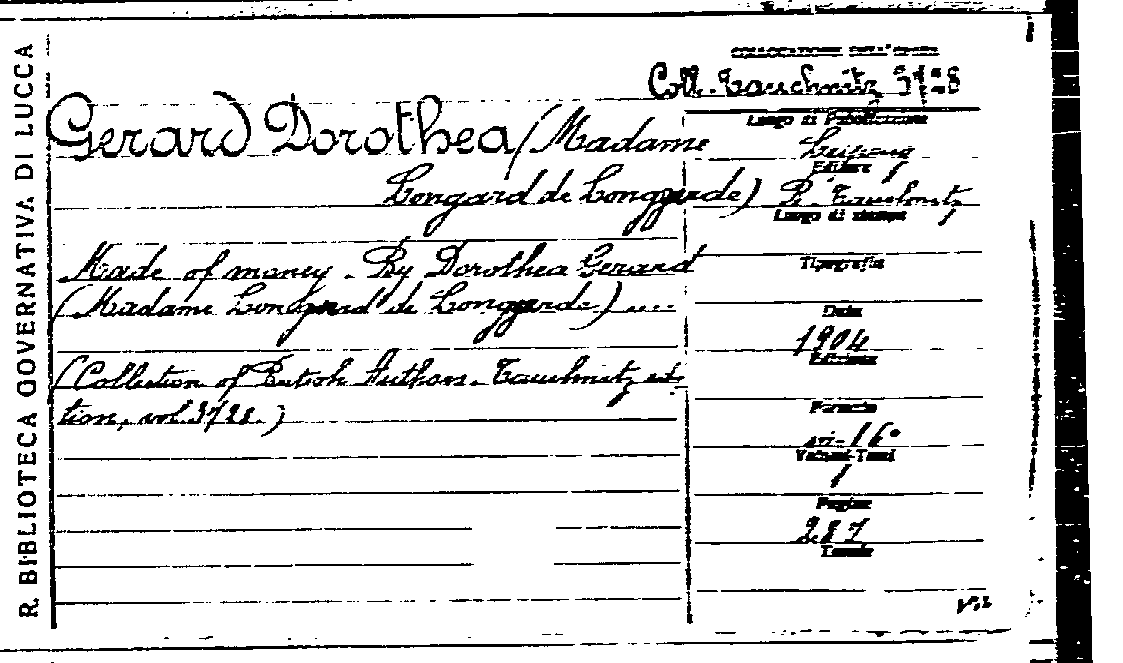 R. BIBLIOTECA GOVERNATIVA DI LUCCA
COLLOCAZIONE DELL'OPERA
Coll. Tauchnitz 3728
Gerard Dorothea (Madame
Longard de Longgarde)
Made of money. By Dorothea Gerard
(Madame Longard de Longgarde) ....
(Collection of British Authors. Tauchnitz edi-
tion, vol. 3728.)
Luogo di Pubblicazione
Leipzig
Editore
B. Tauchnitz
Luogo di stampa
Tipografia
Data
1904
Edizione
Formato
in-16°
Volumi-Tomi
1
Pagine
287
Tavole